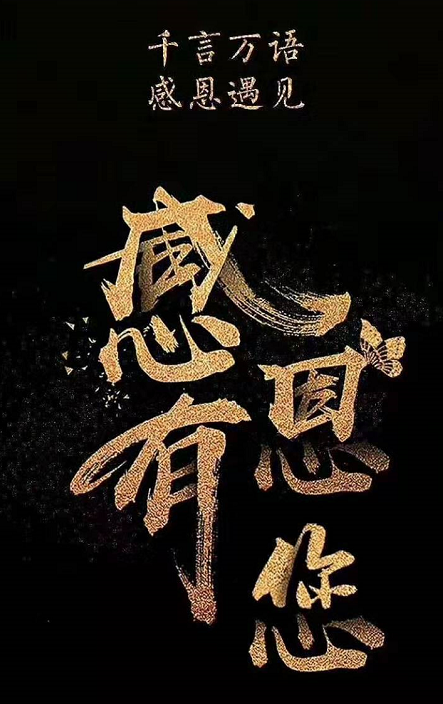 千言万语
感恩遇见
感恩
有您